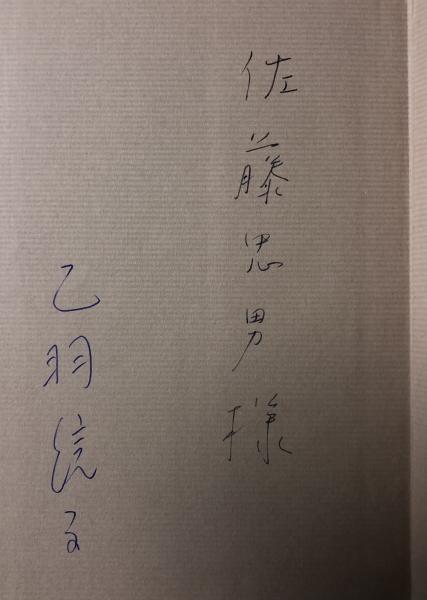 佐藤忠男様
乙羽信子